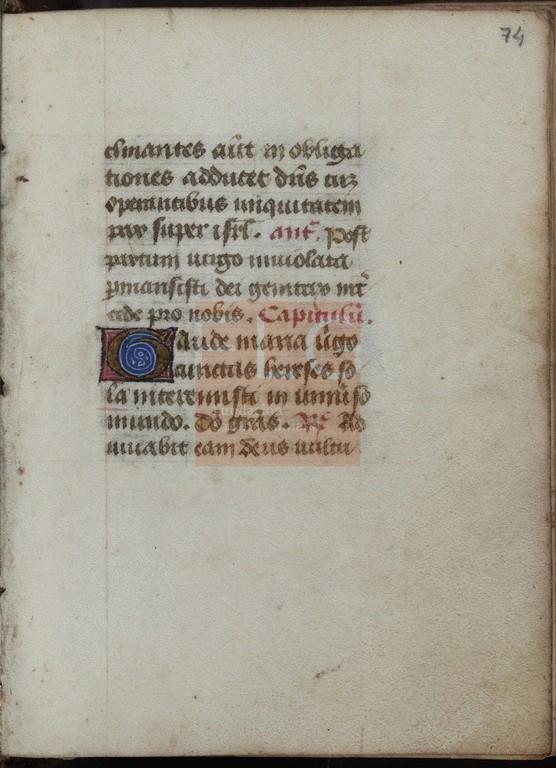 74
clinantes aūt in obliga
tiones adducet dn̄s cuz
operantibus iniquitatem
pax super isrl. anī. Post
partum uirgo inuiolata
ꝑmansisti dei genitrix int̄
cede pro nobis. Capitulū.
Gaude maria uīgo
cunctas hereses so
la interemisti in uniūso
mundo. Dō grās. R Ad
iuuabit eam deus uultu